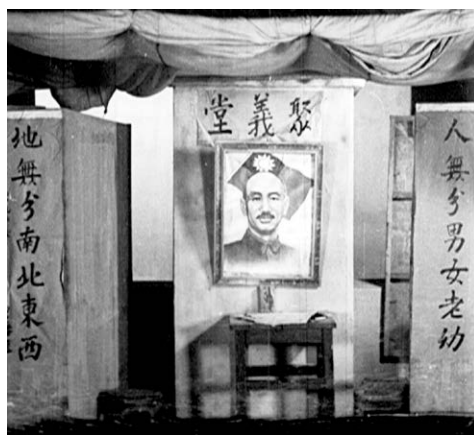 聚義堂
人無分男女老幼
地無分南北東西